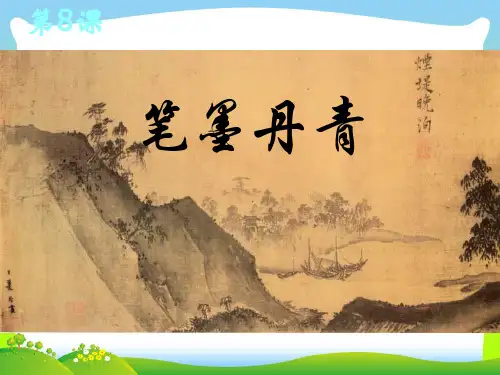 第8课
笔墨丹青
煙堤晚泊